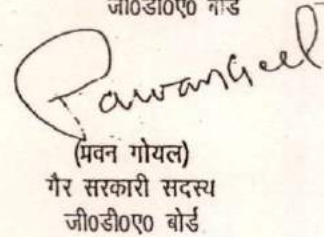 जी0डी0ए0 बोर्ड
Pawan Goel
(पवन गोयल)
गैर सरकारी सदस्य
जी0डी0ए0 बोर्ड